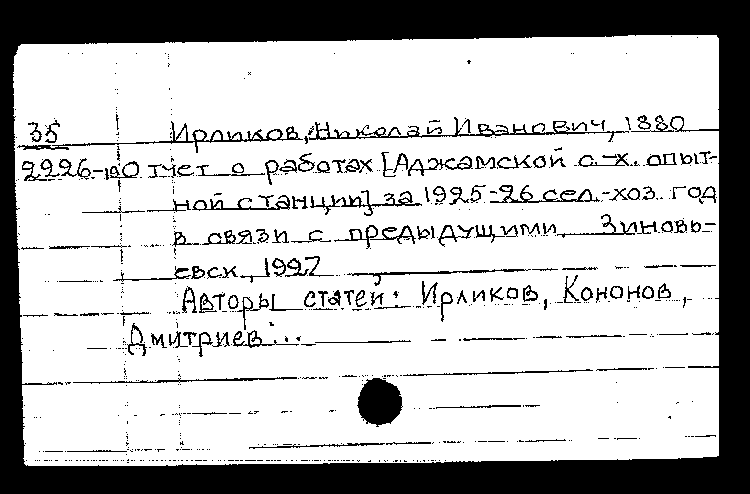 35 Ирликов, Николай Иванович, 1880
2226-10 Отчет о работах [Аджамской с.-х. опыт-
ной станции] за 1925-26 сел.-хоз. год
в связи с предыдущими. Зиновь-
евск., 1927
Авторы статей: Ирликов, Кононов,
Дмитриев...